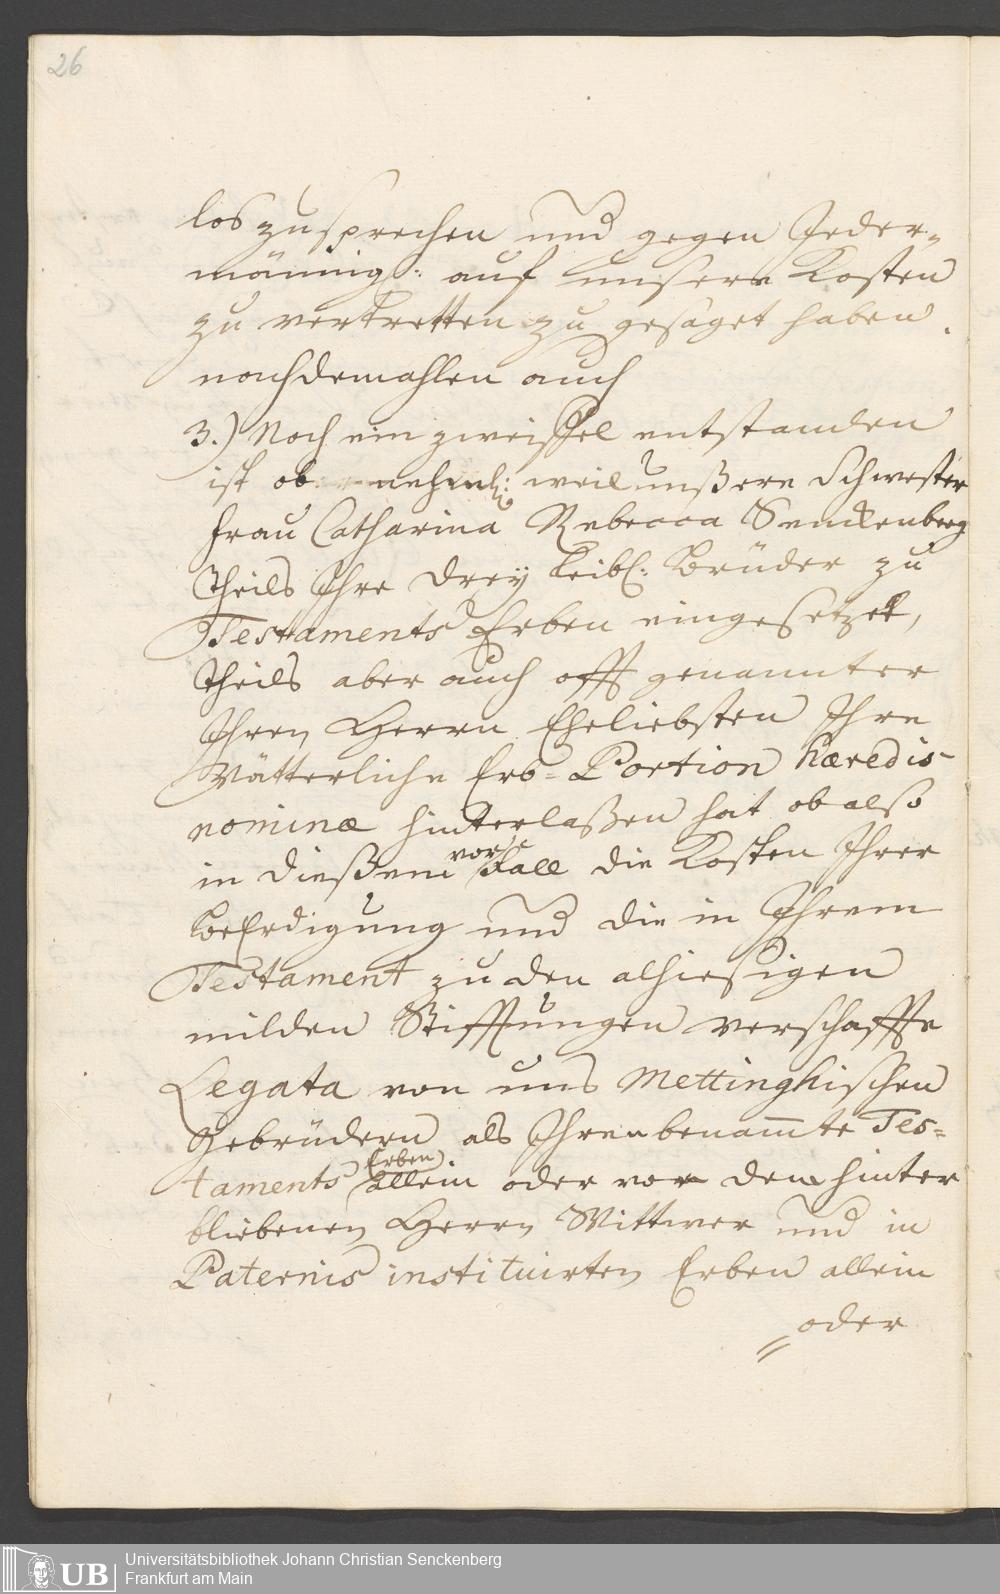 26
loszusprechen und gegen Jeder-
männigl: auf unsere Kosten
zu vertretten zu gesaget haben.
nachdemahlen auch
3.) Noch ein zweiffel entstanden
ist ob nehml: weil unßere Schwester
Frau Catharina Rebecca Senckenberg
theils Ihre drey leibl: Brüder zu
Testaments Erben eingesetzet,
theils aber auch offt genannter
Ihren Herrn Eheliebsten Ihre
Vätterliche Erb-Portion hæredis-
nominæ hinterlaßen hat ob also
in dießem vor Fall die Kosten Ihrer
BeErdigung und die in Ihrem
Testament zu den alhiesigen
milden Stifftungen verschaffte
Legata von uns Mettinghischen
Gebrüdern als Ihren benam̅te Tes-
taments Erben allein oder von dem hinter
bliebenen Herrn Wittwer und in
Paternis instituirten Erben allein
oder
UB Universitätsbibliothek Johann Christian Senckenberg
Frankfurt am Main